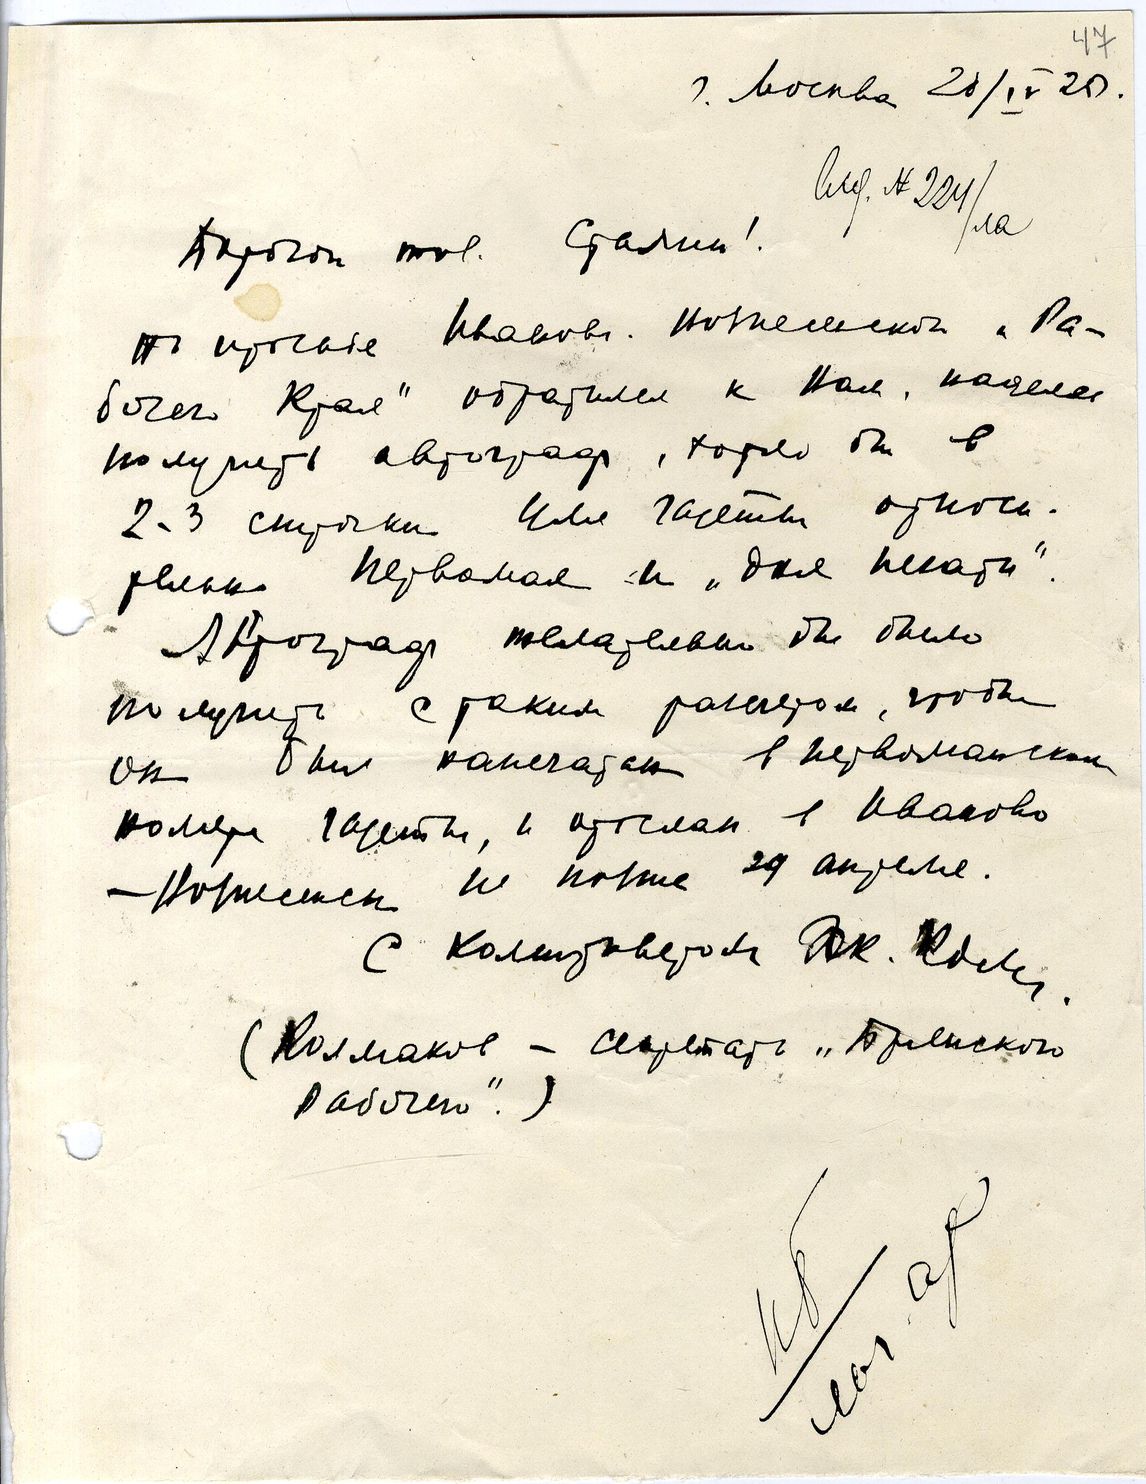 47
г. Москва 28/IV 28.
№ 224/ла
Дорогой тов. Сталин!
По просьбе Иваново. Вознесенской „Ра-
бочего Края" обратился к Вам, надеясь
получить автограф, хотя бы в
2-3 строчки для газеты относи-
тельно Первомая и „дня печати".
Автограф желательно бы было
получить с таким расчетом, чтобы
он был напечатан в первомайском
номере газеты, и прислан в Иваново
– Вознесенск не позже 29 апреля.
С Комприветом Дк.
(Колмаков – секретарь „Брянского
Рабочего".)